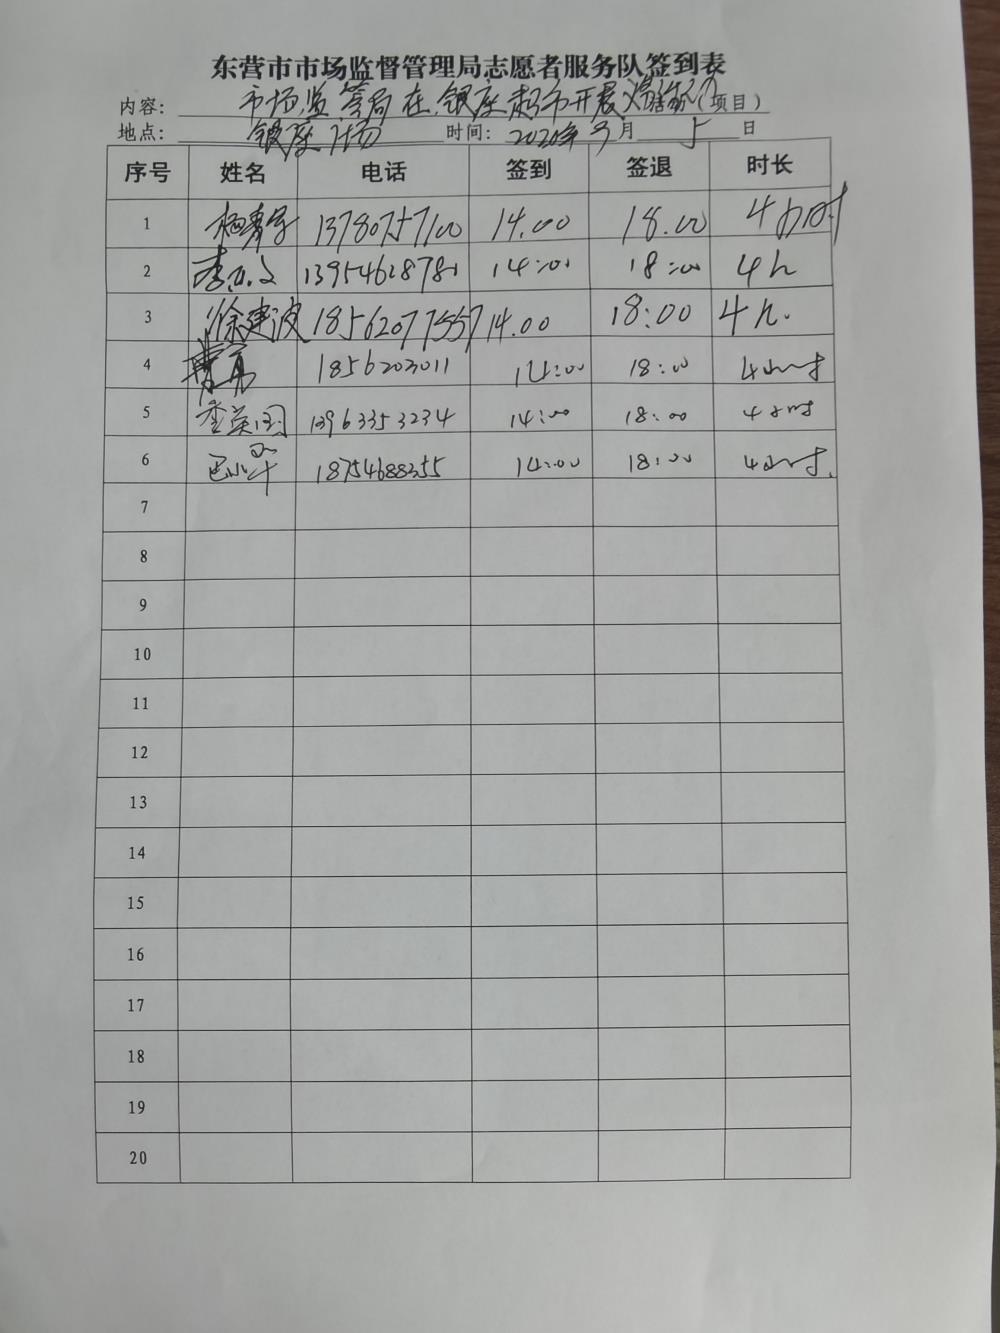 东营市市场监督管理局志愿者服务队签到表
内容: 市场监管局在银座超市开展 (项目)
地点: 银座广场 时间: 2020年 月 5 日
序号 姓名 电话 签到 签退 时长
1 14.00 18.00 4小时
2 李 14:00 18:00 4h
3 徐建波 18562077557 14.00 18:00 4h.
4 1856203011 14:00 18:00 4小时
5 李英国 13963353234 14:00 18:00 4小时
6 巴小平 18754688355 14:00 18:00 4小时.
7
8
9
10
11
12
13
14
15
16
17
18
19
20